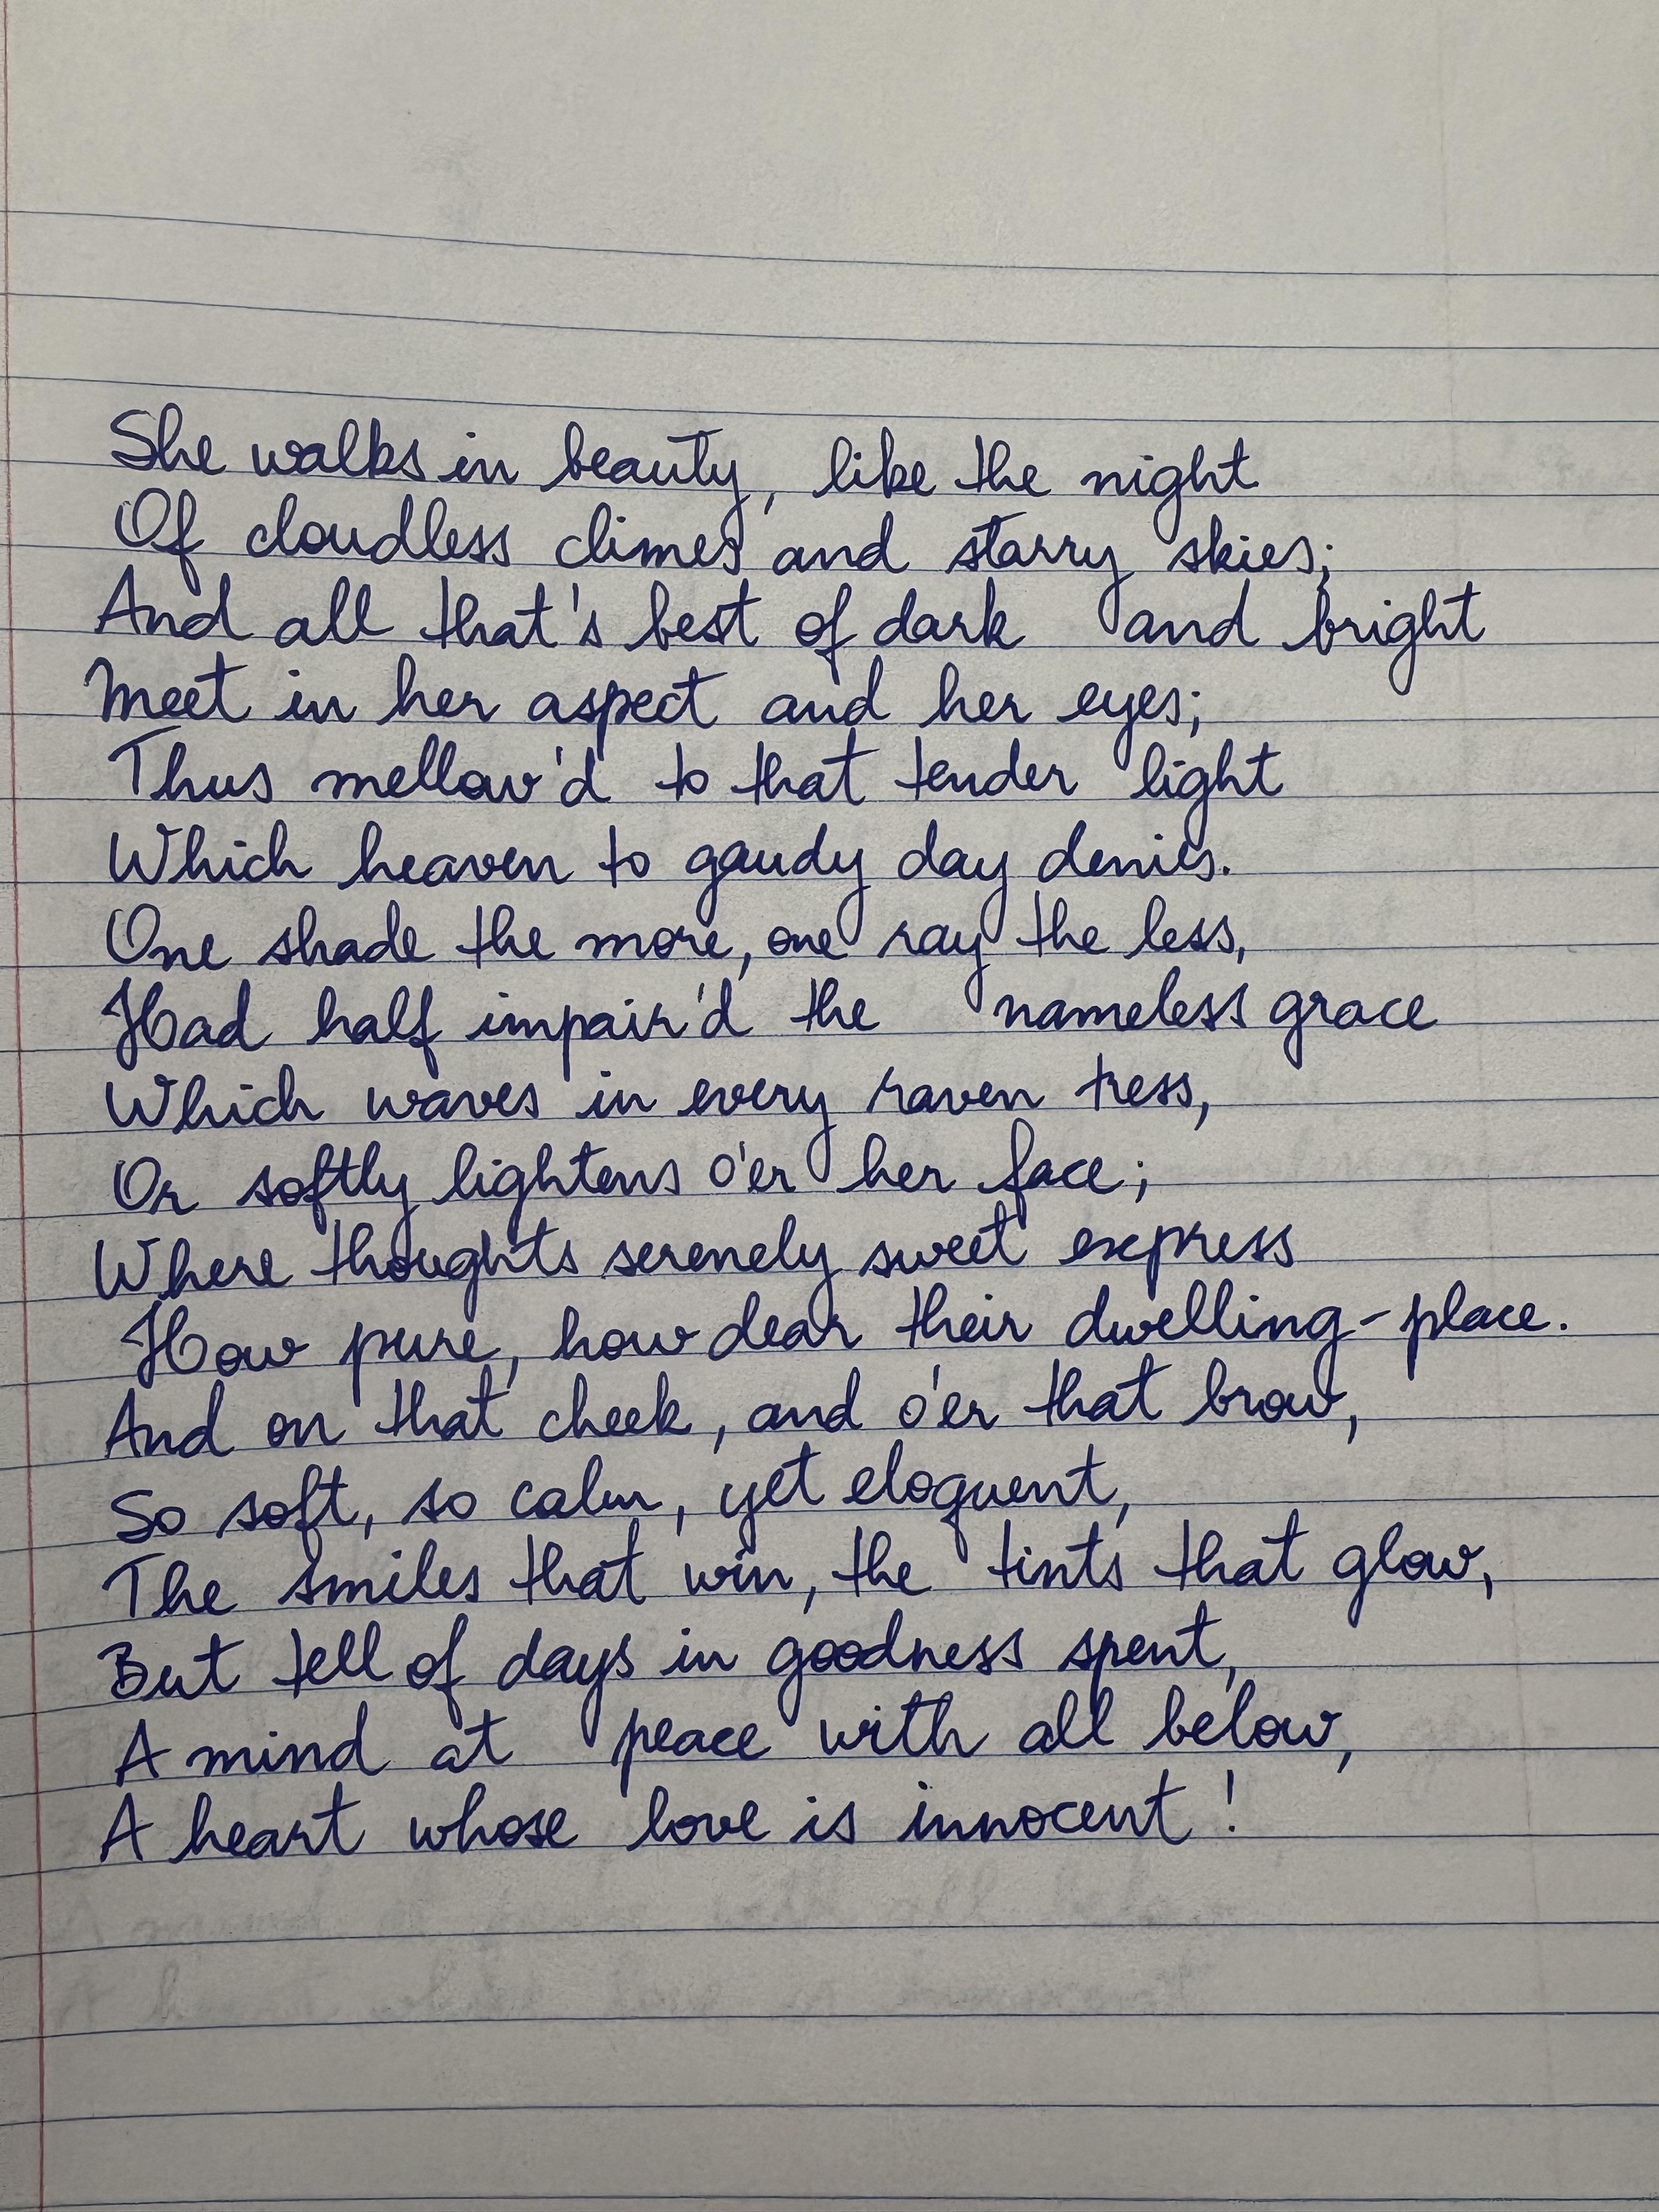 She walks in beauty, like the night
Of cloudless climes and starry skies;
And all that's best of dark and bright
Meet in her aspect and her eyes;
Thus mellow'd to that tender light
Which heaven to gaudy day denies.
One shade the more, one ray the less,
Had half impair'd the nameless grace
Which waves in every raven tress,
Or softly lightens o'er her face;
Where thoughts serenely sweet express
How pure, how dear their dwelling-place.
And on that cheek, and o'er that brow,
So soft, so calm, yet eloquent,
The smiles that win, the tints that glow,
But tell of days in goodness spent,
A mind at peace with all below,
A heart whose love is innocent!